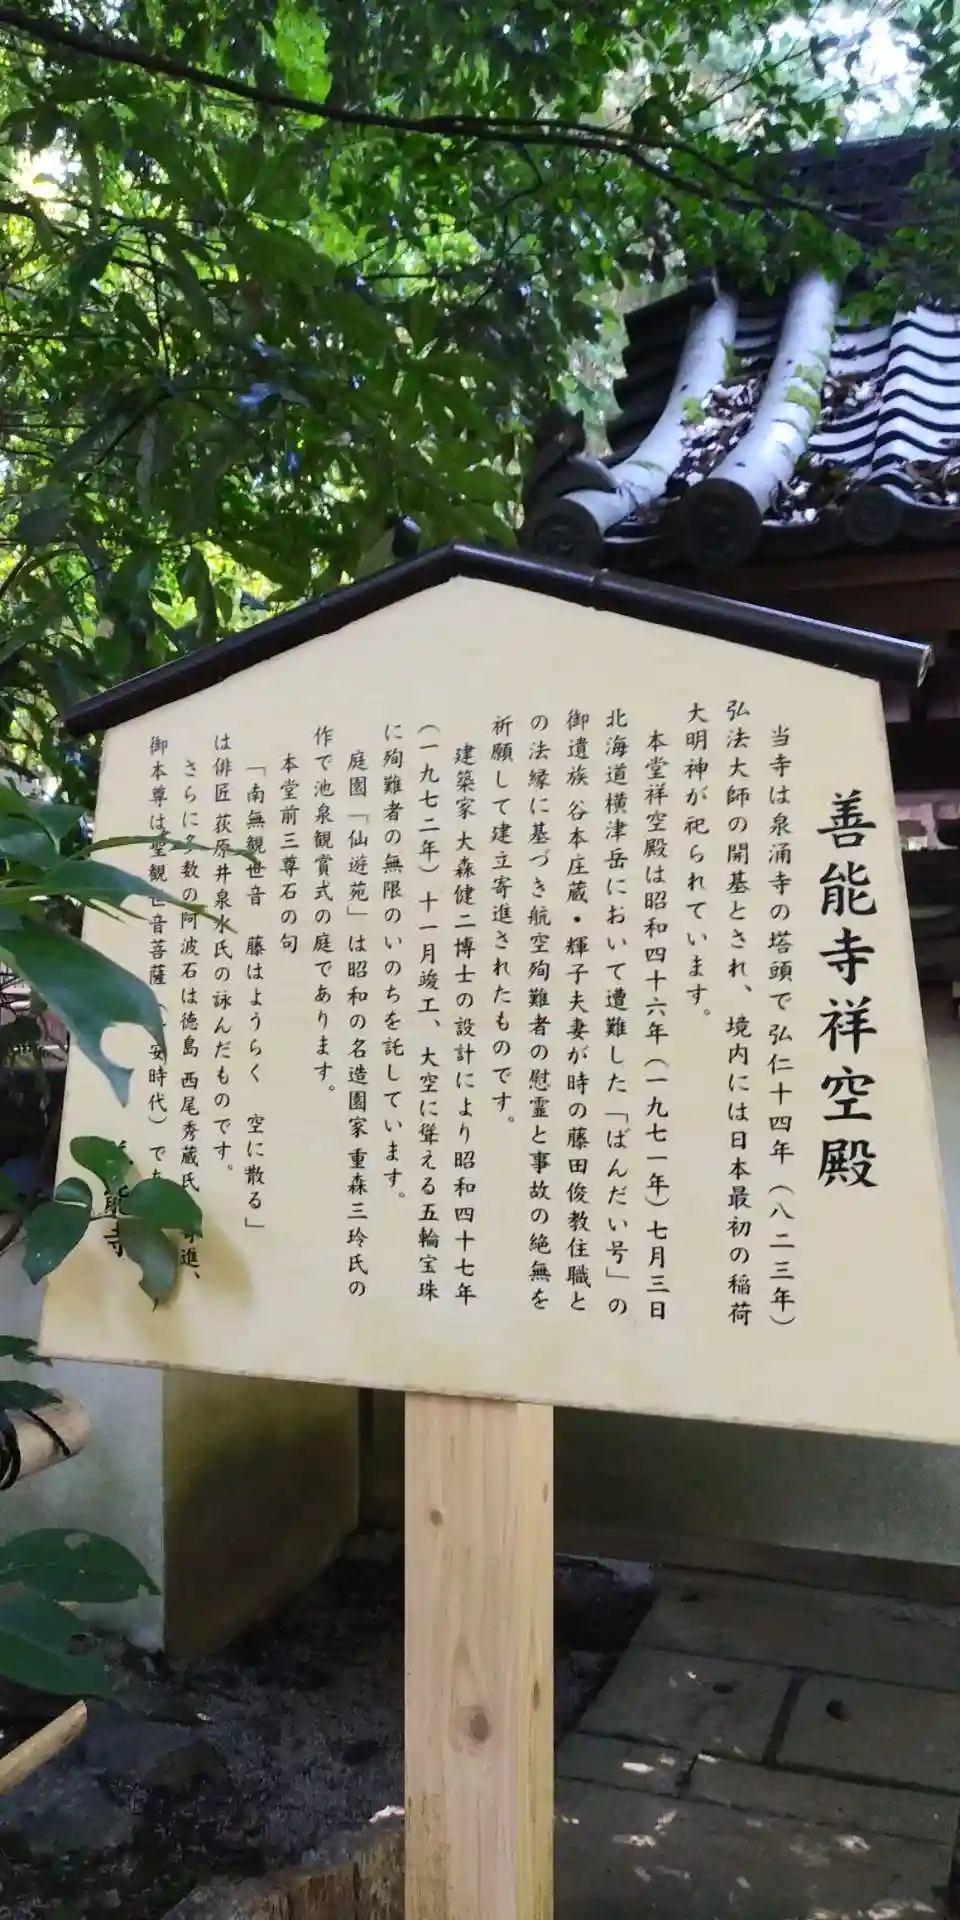 善能寺祥空殿
当寺は泉涌寺の塔頭で弘仁十四年（八二三年）
弘法大師の開基とされ、境内には日本最初の稲荷
大明神が祀られています。
本堂祥空殿は昭和四十六年（一九七一年）七月三日
北海道横津岳において遭難した「ばんだい号」の
御遺族 谷本庄蔵・輝子夫妻が時の藤田俊教住職と
の法縁に基づき航空殉難者の慰霊と事故の絶無を
祈願して建立寄進されたものです。
建築家 大森健二博士の設計により昭和四十七年
（一九七二年）十一月竣工、大空に聳える五輪宝珠
に殉難者の無限のいのちを託しています。
庭園「仙遊苑」は昭和の名造園家 重森三玲氏の
作で池泉観賞式の庭であります。
本堂前三尊石の句
「南無観世音 藤はようらく 空に散る」
は俳匠 荻原井泉水氏の詠んだものです。
さらに多数の阿波石は徳島 西尾秀蔵氏 進、
御本尊は聖観世音菩薩（ 安時代）で
能寺